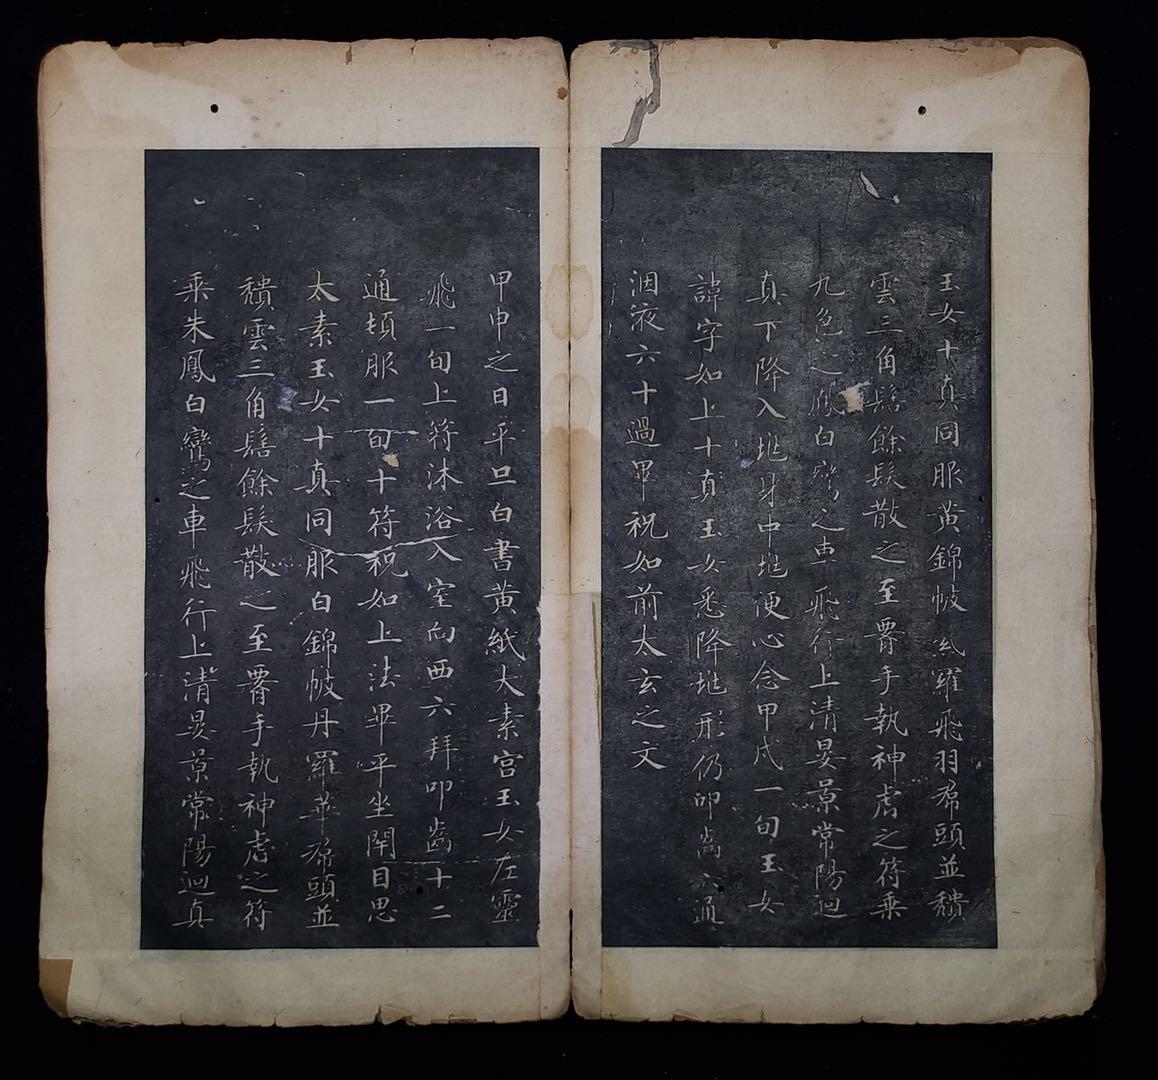 玉女十真同服黃錦帔炁羅飛羽帬頭並穨
雲三角髻餘髮散之至䁥手執神虎之符乗
九色之鳳白鸞之車飛行上清晏景常陽迴
真下降入兆身中兆便心念甲戌一旬玉女
諱字如上十真玉女悉降兆形仍叩齒六通
洇液六十過畢祝如前太玄之文
甲申之日平旦白書黃紙太素宮玉女左靈
飛一旬上符沐浴入室向西六拜叩齒十二
通頓服一旬十符祝如上法畢平坐閉目思
太素玉女十真同服白錦帔丹羅華帬頭並
穨雲三角髻餘髮散之至䁥手執神虎之符
乗朱鳳白鸞之車飛行上清晏景常陽迴真